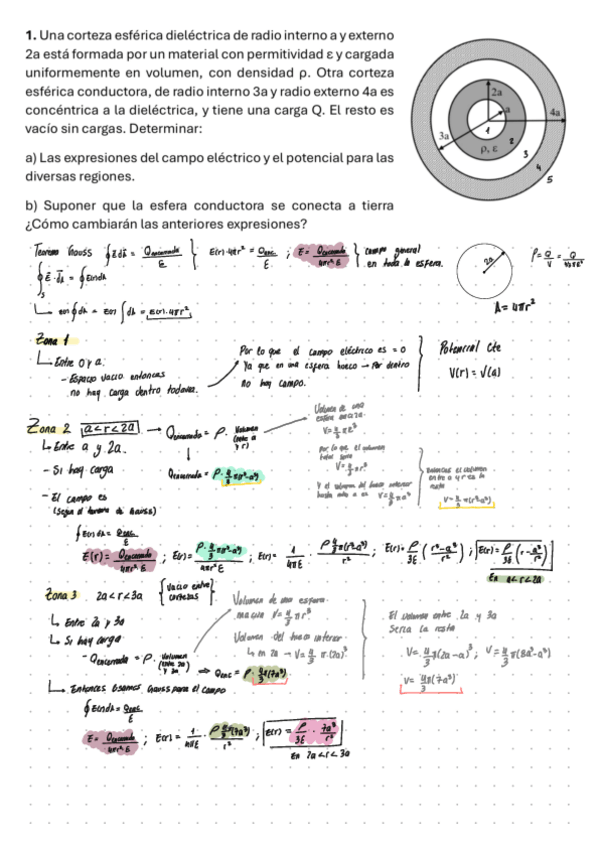 1. Una corteza esférica dieléctrica de radio interno a y externo
2a está formada por un material con permitividad ε y cargada
uniformemente en volumen, con densidad ρ. Otra corteza
esférica conductora, de radio interno 3a y radio externo 4a es
concéntrica a la dieléctrica, y tiene una carga Q. El resto es
vacío sin cargas. Determinar:
a) Las expresiones del campo eléctrico y el potencial para las
diversas regiones.
b) Suponer que la esfera conductora se conecta a tierra
¿Cómo cambiarán las anteriores expresiones?
2a
a
3a
4a
ρ, ε
1
2
3
4
5
Teorema Gauss
E(r)·4πr² = Qenc/ε ; E = Qencerrada/4πr²ε
campo general
en toda la esfera.
2a
A = 4πr²
Zona 1
Entre 0 y a.
- Espacio vacío entonces
no hay carga dentro todavía.
Por lo que el campo eléctrico es = 0
Ya que en una esfera hueca → Por dentro
no hay campo.
Potencial Cte
V(r) = V(a)
Zona 2 a<r<2a → Qencerrada = ρ. Volumen (entre a y r)
Entre a y 2a.
- Si hay carga
Qencerrada = ρ·4/3 π(r³-a³)
- El campo es
Volumen de una
Por lo que el volumen
Y el volumen del hueco interior
Entonces el volumen
entre a y r es la
resta
V = 4/3 π(r³-a³)
E(r) = Qencerrada/4πr²ε ; E(r) = ρ·4/3 π(r³-a³)/4πr²ε ; E(r) = 1/4πε · ρ 4/3 π(r³-a³)/r² ; E(r) = ρ/3ε (r³-a³/r²) ; E(r) = ρ/3ε (r-a³/r²)
En a<r<2a
Zona 3 2a<r<3a
Vacío entre
cortezas
Entre 2a y 3a
Si hay carga
- Qencerrada = ρ. Volumen (entre 2a y 3a) ⇒ Qenc = ρ·4π/3 (7a³)
Volumen de una esfera
maciza V = 4/3 π r³
Volumen del hueco interior
en 2a → V = 4/3 π·(2a)³
El volumen entre 2a y 3a
Seria la resta
V = 4/3 π(2a-a)³ ; V = 4/3 π(8a³-a³)
V = 4π/3 (7a³)
Entonces usamos Gauss para el campo
E = Qencerrada/4πr²ε ; E(r) = 1/4πε · ρ 4/3 π(7a³)/r² ; E(r) = ρ/3ε · 7a³/r²
En 2a<r<3a